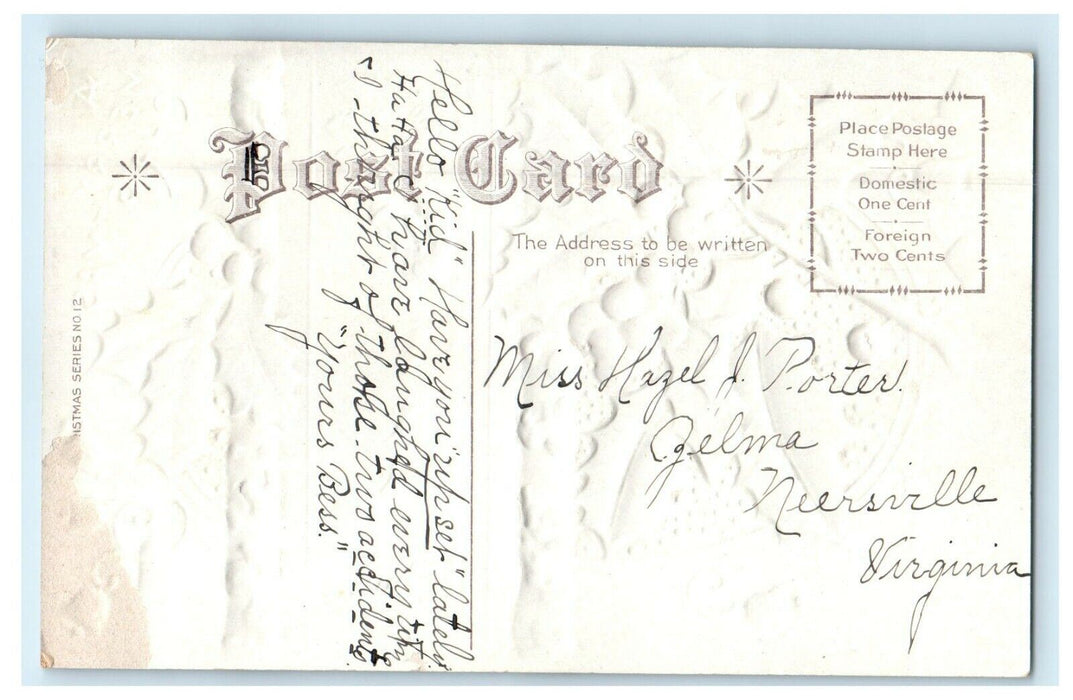 Post Card
Place Postage
Stamp Here
Domestic
One Cent
Foreign
Two Cents
The Address to be written
on this side
ISTMAS SERIES NO.12
Hello "Kid" Have you "upset" lately
Ha Ha. I have laughed every time
I thought of those two accidents.
"Yours Bess."
Miss Hazel J. Porter.
Zelma
Neersville
Virginia